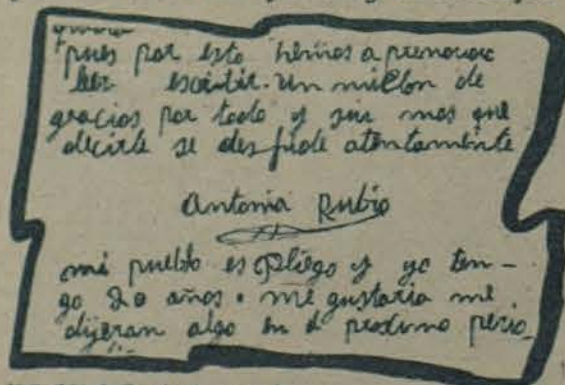 pues por esto hemos aprendido
leer escribir. un millon de
gracias por todo y sin mas que
decirle se despide atentamente
Antonia Rubio
mi pueblo es Pliego y yo ten-
go 20 años. me gustaria me
dijeran algo en el proximo perio